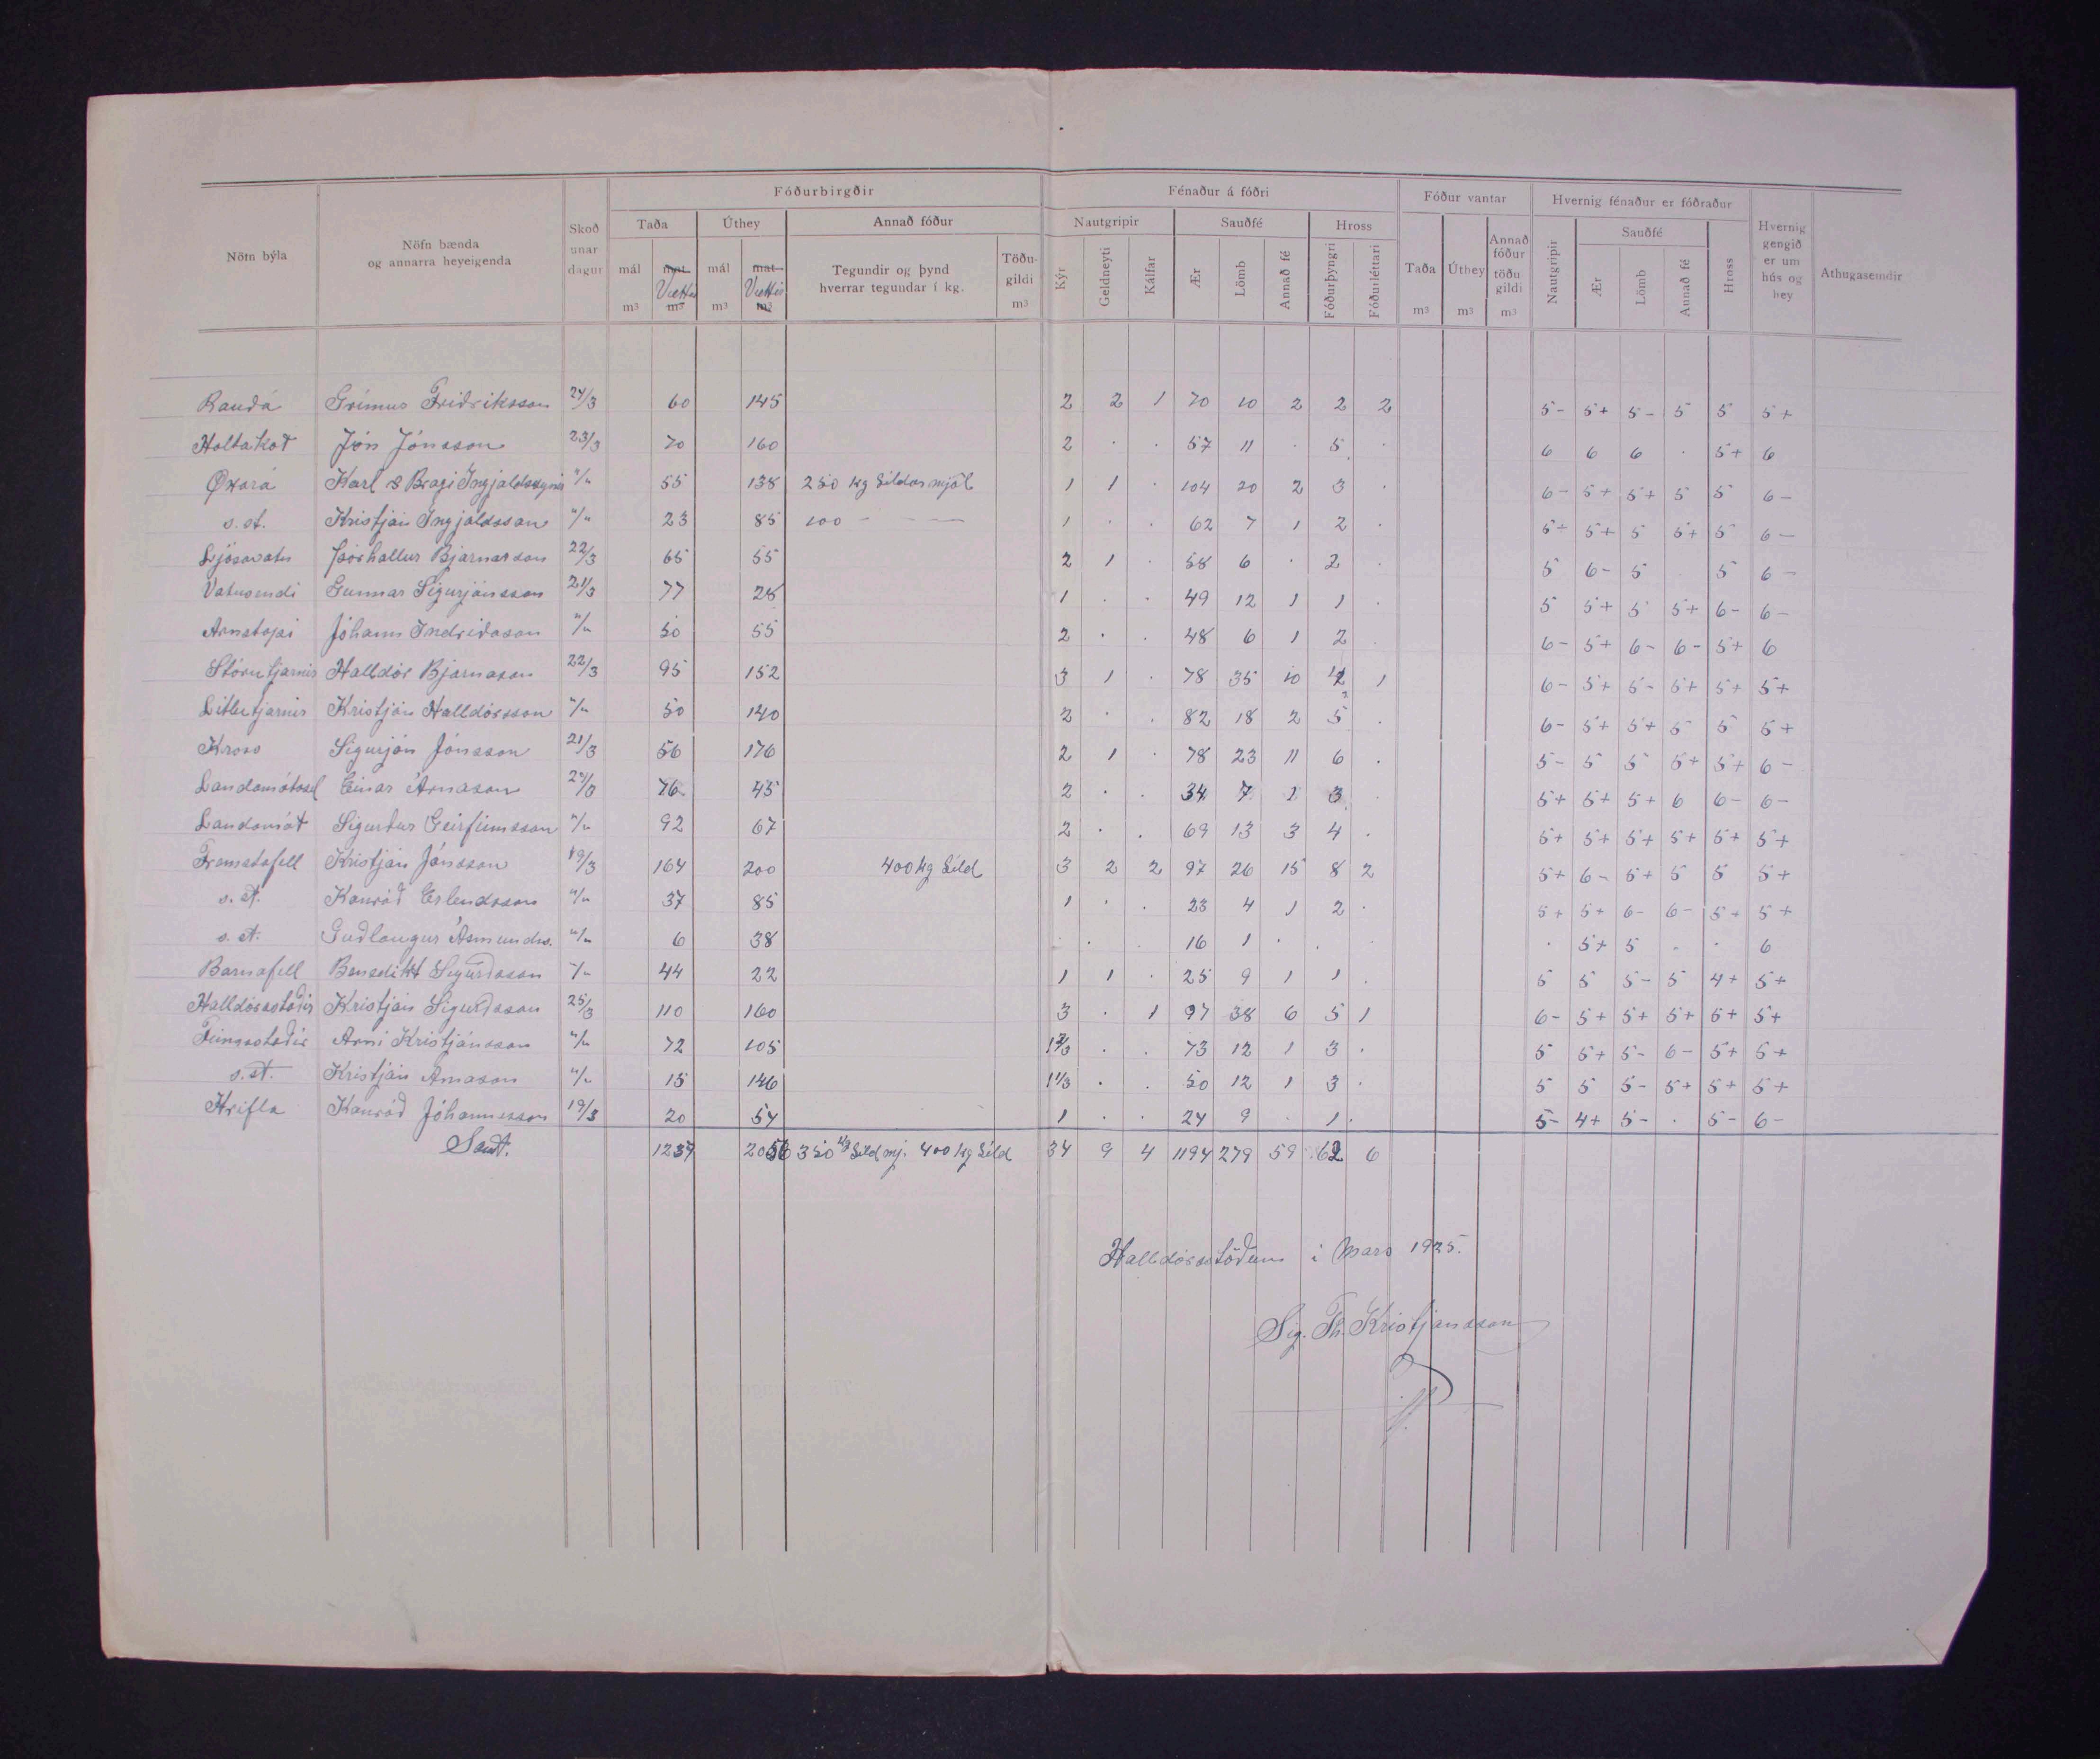 Fóðurbirgðir Fénaður á fóðri Fóður vantar Hvernig fénaður er fóðraður
Nöfn býla Nöfn bænda og annarra heyeigenda Skoðunardagur Taða Úthey Annað fóður Nautgripir Sauðfé Hross Taða Úthey Annað fóður töðugildi Nautgripir Sauðfé Hross Hvernig gengið er um hús og hey Athugasemdir
mál m³ Vættir m³ mál m³ Vættir m³ Tegundir og þynd hverrar tegundar í kg. Töðugildi m³ Kýr Geldneyti Kálfar Ær Lömb Annað fé Fóðurþyngri Fóðurléttari m³ m³ m³ Ær Lömb Annað fé
Rauðá Grímur Friðriksson 24/3 60 145 2 2 1 70 10 2 2 2 5- 5+ 5- 5 5 5+
Holtakot Jón Jónsson 23/3 70 160 2 . . 57 11 . 5 . 6 6 6 . 5+ 6
Øxará Karl & Bragi Ingjaldssynir "/" 55 138 250 kg Síldarmjöl 1 1 . 104 20 2 3 . 6- 5+ 5+ 5 5 6-
s. st. Kristján Ingjaldsson "/" 23 85 100 - — 1 . . 62 7 1 2 . 5÷ 5+ 5 5+ 5 6-
Ljósavatn Þórhallur Bjarnarson 22/3 65 55 2 1 . 58 6 . 2 . 5 6- 5 5 6-
Vatnsendi Gunnar Sigurjónsson 21/3 77 28 1 . . 49 12 1 1 . 5 5+ 5 5+ 6- 6-
Arnstapi Jóhann Indriðason "/" 50 55 2 . . 48 6 1 2 . 6- 5+ 6- 6- 5+ 6
Stórutjarnir Halldór Bjarnason 22/3 95 152 3 1 . 78 35 10 1 6- 5+ 5- 5+ 5+ 5+
Litlutjarnir Kristján Halldórsson "/" 50 140 2 . . 82 18 2 5 . 6- 5+ 5+ 5 5 5+
Kross Sigurjón Jónsson 21/3 56 176 2 1 . 78 23 11 6 . 5- 5 5 5+ 5+ 6-
Landamótssel Einar Árnason 76 45 2 . . 34 7 1 3 . 5+ 5+ 5+ 6 6- 6-
Landamót Sigurður Geirfinnsson "/" 92 67 2 . . 69 13 3 4 . 5+ 5+ 5+ 5+ 5+ 5+
Fremstafell Kristján Jónsson 19/3 164 200 400 kg Síld 3 2 2 97 26 15 8 2 5+ 6- 5+ 5 5 5+
s. st. Konráð Erlendsson "/" 37 85 1 . . 23 4 1 2 . 5+ 5+ 6- 6- 5+ 5+
s. st. Guðlaugur Ásmunds. "/" 6 38 . . . 16 1 . . . . 5+ 5 . . 6
Barnafell Benedikt Sigurðsson "/" 44 22 1 1 . 25 9 1 1 . 5 5 5- 5 4+ 5+
Halldórsstaðir Kristján Sigurðsson 25/3 110 160 3 . 1 97 38 6 5 1 6- 5+ 5+ 5+ 5+ 5+
Finnsstaðir Árni Kristjánsson "/" 72 105 1 2/3 . . 73 12 1 3 . 5 5+ 5- 6- 5+ 5+
s. st. Kristján Árnason "/" 15 146 1 1/3 . . 50 12 1 3 . 5 5 5- 5+ 5+ 5+
Hrifla Konráð Jóhannesson 19/3 20 54 1 . . 24 9 . 1 . 5- 4+ 5- . 5- 6-
Samt. 1237 2056 350 kg Síldmj. 400 kg Síld 34 9 4 1194 279 59 62 6
Halldórsstöðum í Mars 1925.
Sig. Th. Kristjánsson